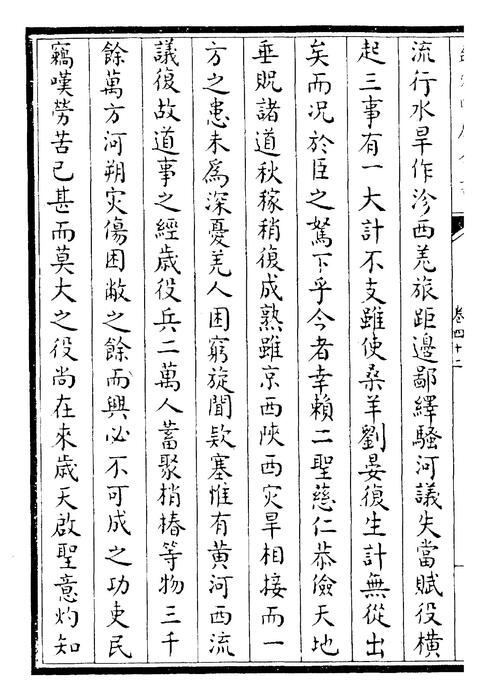 卷四十二
流行水旱作沴西羌旅距邊鄙繹騷河議失當賦役橫
起三事有一大計不支雖使桑羊劉晏復生計無從出
矣而况於臣之駑下乎今者幸賴二聖慈仁恭儉天地
垂貺諸道秋稼稍復成熟雖京西陜西灾旱相接而一
方之患未為深憂羌人困窮旋聞欵塞惟有黃河西流
議復故道事之經歳役兵二萬人蓄聚梢樁等物三千
餘萬方河朔灾傷困敝之餘而興必不可成之功吏民
竊嘆勞苦已甚而莫大之役尚在來歳天啟聖意灼知